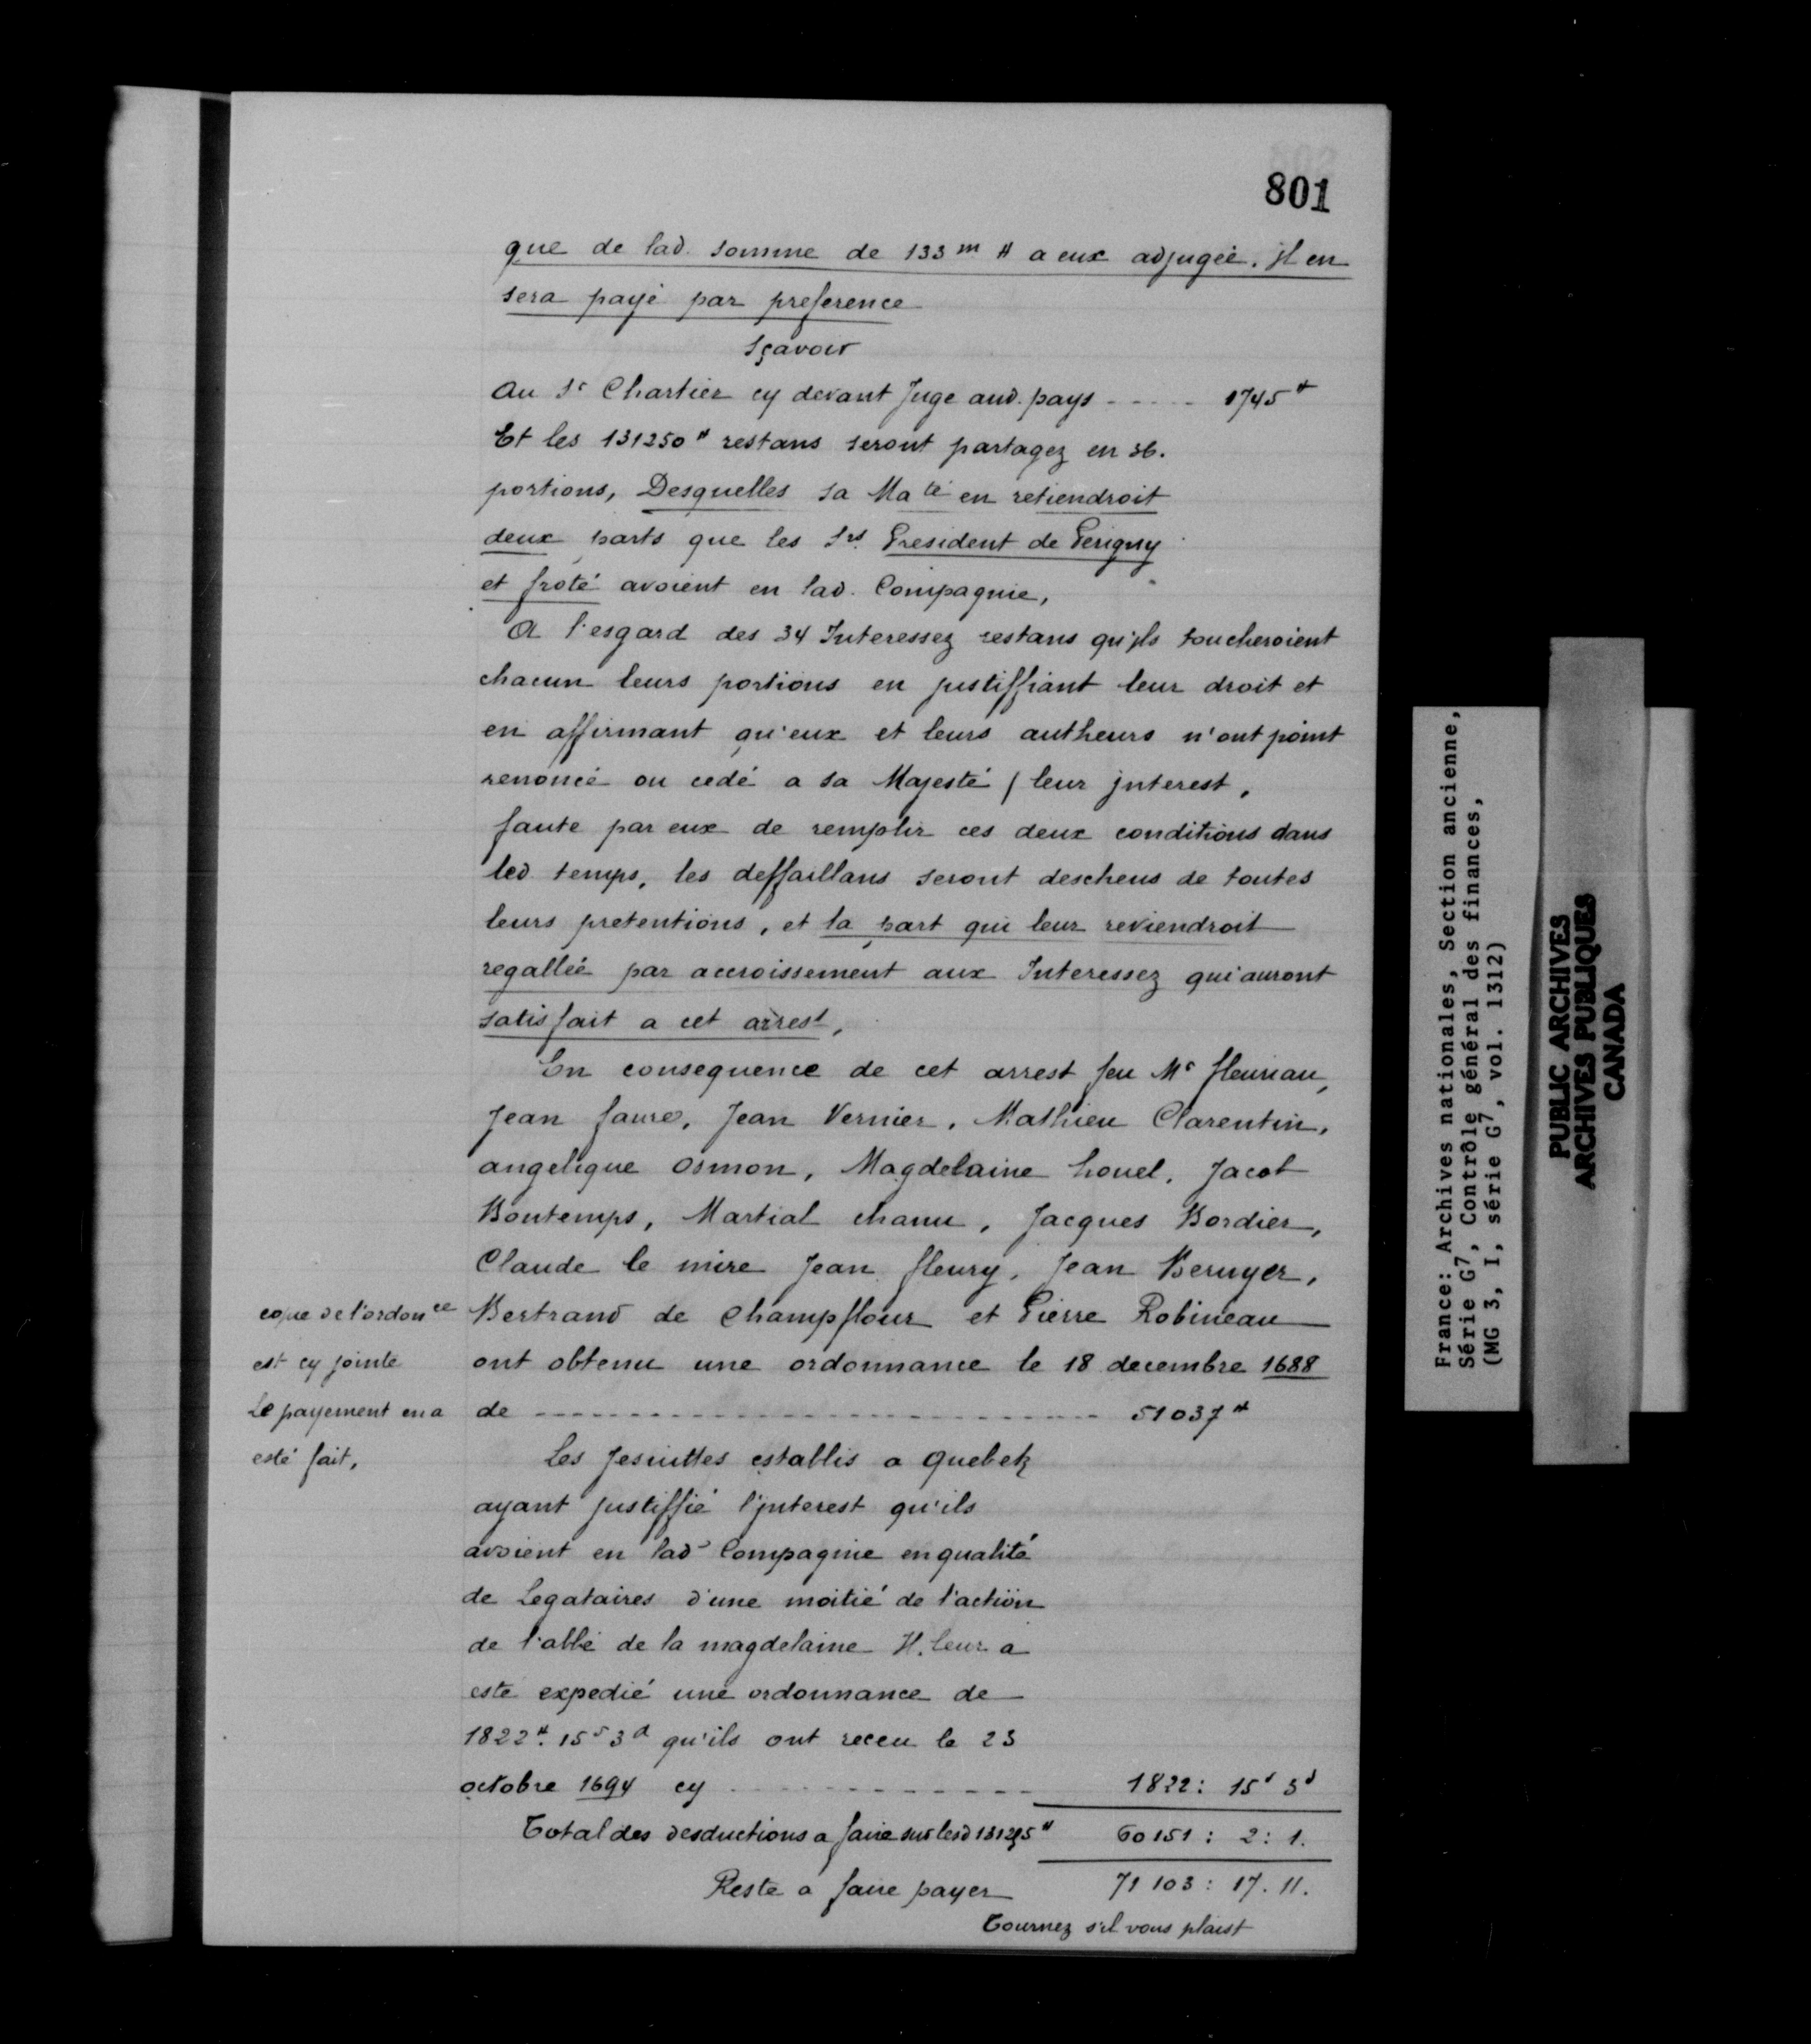 801
que de lad. somme de 133 m ₶ a eux adjugée. Jl en
sera payé par preference
Sçavoir
Au Sr Chartier cy devant Juge aud. pays ----- 1745₶
Et les 131250₶ restans seront partagez en 36.
portions, Desquelles sa Ma té en retiendroit
deux parts que les Srs. President de Perigny
et froté avoient en lad. Compagnie,
A l'esgard des 34 Interessez restans qu'jls toucheroient
chacun leurs portions en justiffiant leur droit et
en affirmant qu'eux et leurs autheurs n'ont point
renoncé ou cedé a sa Majesté / leur jnterest,
faute par eux de remplir ces deux conditions dans
led temps, les deffaillans seront descheus de toutes
leurs pretentions, et la part qui leur reviendroit
regallée par accroissement aux Interessez qui auront
satisfait a cet arrest,
En consequence de cet arrest feu Mr fleuriau,
Jean faure, Jean Vernier, Mathieu Clarentin,
angelique Osmon, Magdelaine houel, Jacob
Bontemps, Martial chanu, Jacques Bordier,
Claude le mire Jean fleury, Jean Beruyer,
Bertrand de Champflour et Pierre Robineau
ont obtenu une ordonnance le 18 decembre 1688
de ---------- 51037₶
copie de l'ordonce
est cy jointe
Le payement en a
esté fait,
Les Jesuittes establis a Quebek
ayant justiffié l'jnterest qu'ils
avoient en lad Compagnie en qualité
de Legataires d'une moitié de l'action
de l'abbé de la magdelaine Jl. leur a
este expedié une ordonnance de
1822₶. 15s 3d qu'ils ont receu le 23
octobre 1694 cy ---------- 1822: 15s 3d
Total des desductions a faire sur lesd 131255₶ 60151: 2: 1.
Reste a faire payer 71103: 17. 11.
Tournez s'il vous plaist
France: Archives nationales, Section ancienne,
Série G7, Contrôle général des finances,
(MG 3, I, série G7, vol. 1312)
PUBLIC ARCHIVES
ARCHIVES PUBLIQUES
CANADA